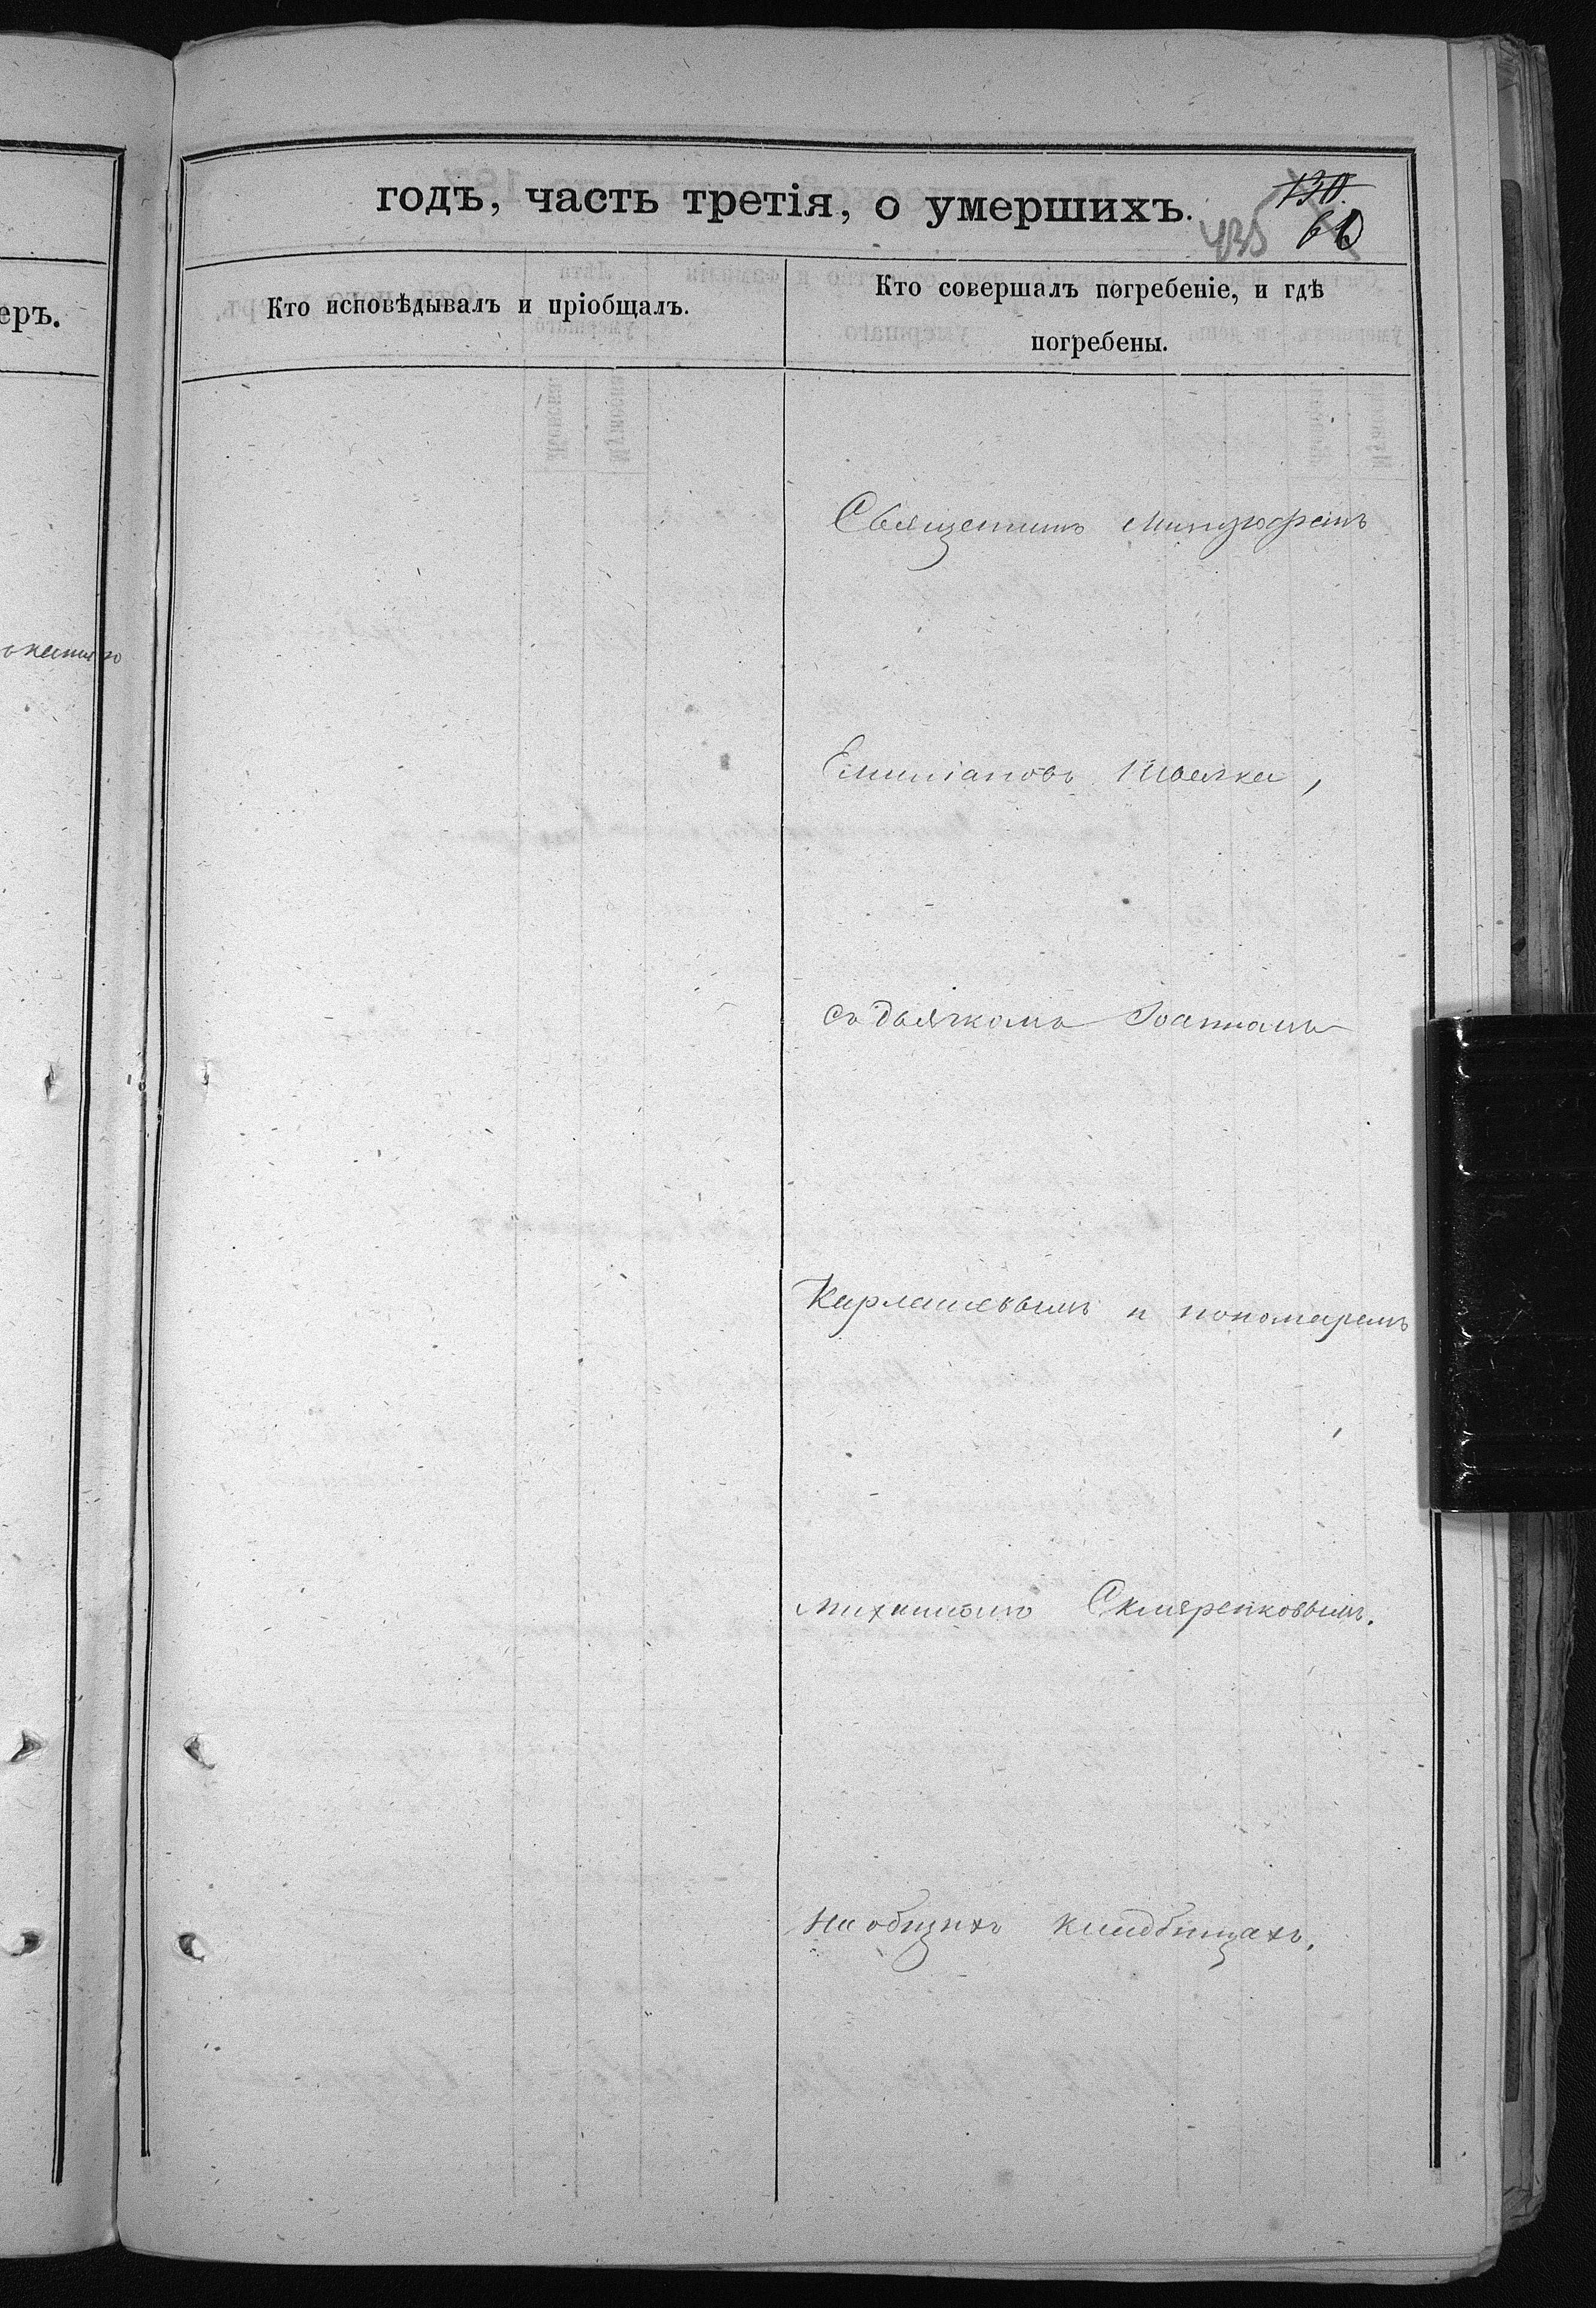 годъ, часть третія, о умершихъ.
130.
435 60
еръ.
Кто исповѣдывалъ и пріобщалъ.
Кто совершалъ погребеніе, и гдѣ
погребены.
Священникъ
Емиліановъ Швачка,
съ дьячкомъ Іоанномъ
Карлашевымъ и пономаремъ
Михаиломъ Скляренковымъ.
на общихъ кладбищахъ.